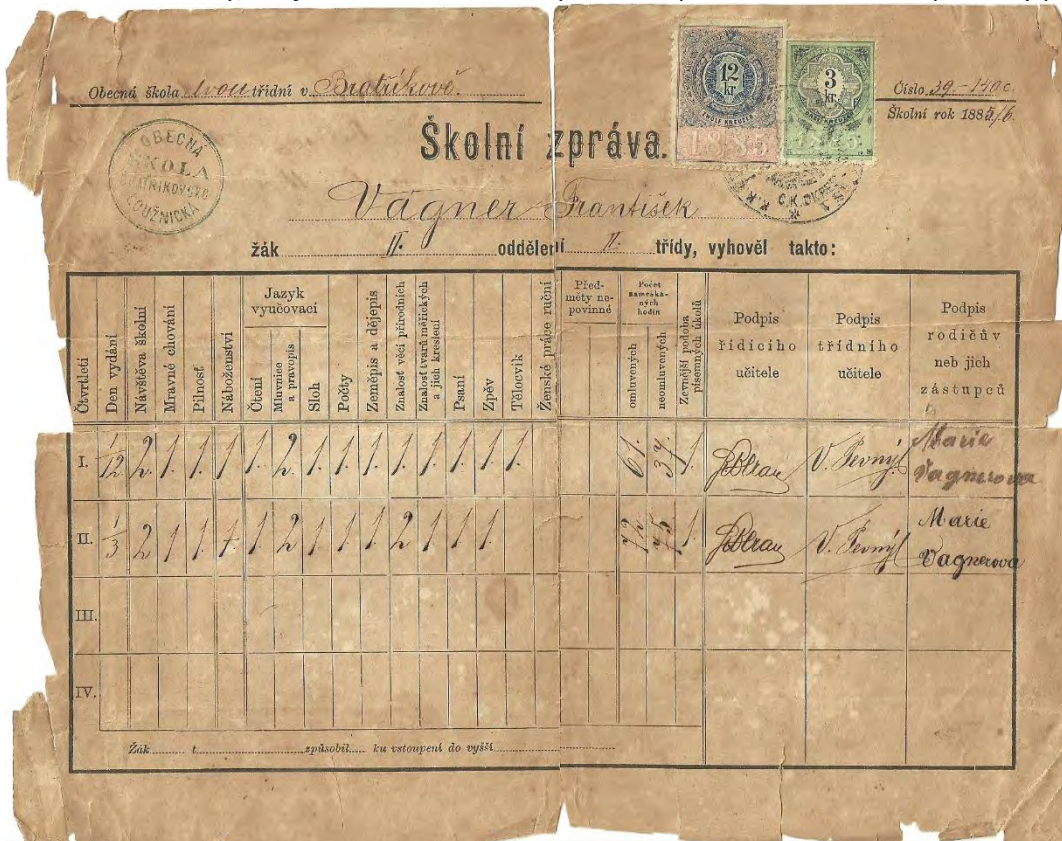 Obecná škola dvou třídní v Bratříkově.
Číslo 39.
Školní rok 1885/6.
OBECNÁ
ŠKOLA
LOUŽNICKÁ
12
kr.
1885
3
kr.
C.K. OKRES
Školní zpráva.
Vágner František
žák II. oddělení II. třídy, vyhověl takto:
Čtvrtletí
Den vydání
Návštěva školní
Mravné chování
Pilnost
Náboženství
Jazyk
vyučovací
Čtení
Mluvnice
a pravopis
Sloh
Počty
Zeměpis a dějepis
Znalost věcí přírodních
Znalost tvarů měřických
a jich kreslení
Psaní
Zpěv
Tělocvik
Ženské práce ruční
Před-
měty ne-
povinné
Počet
zameška-
ných
hodin
omluvených
neomluvených
Zevnější podoba
písemných úkolů
Podpis
řídícího
učitele
Podpis
třídního
učitele
Podpis
rodičův
neb jich
zástupců
I. 1/12 2. 1. 1. 1 1. 2. 1. 1. 1. 1. 1. 1. 1. 1. 61. 1. V. Pevný Marie
Vagnerova
II. 1/3 2 1 1. 1. 1. 2 1 1. 1. 2 1. 1. 1. 72. 75 1. V. Pevný Marie
Vagnerova
III.
IV.
Žák t způsobil ku vstoupení do vyšší